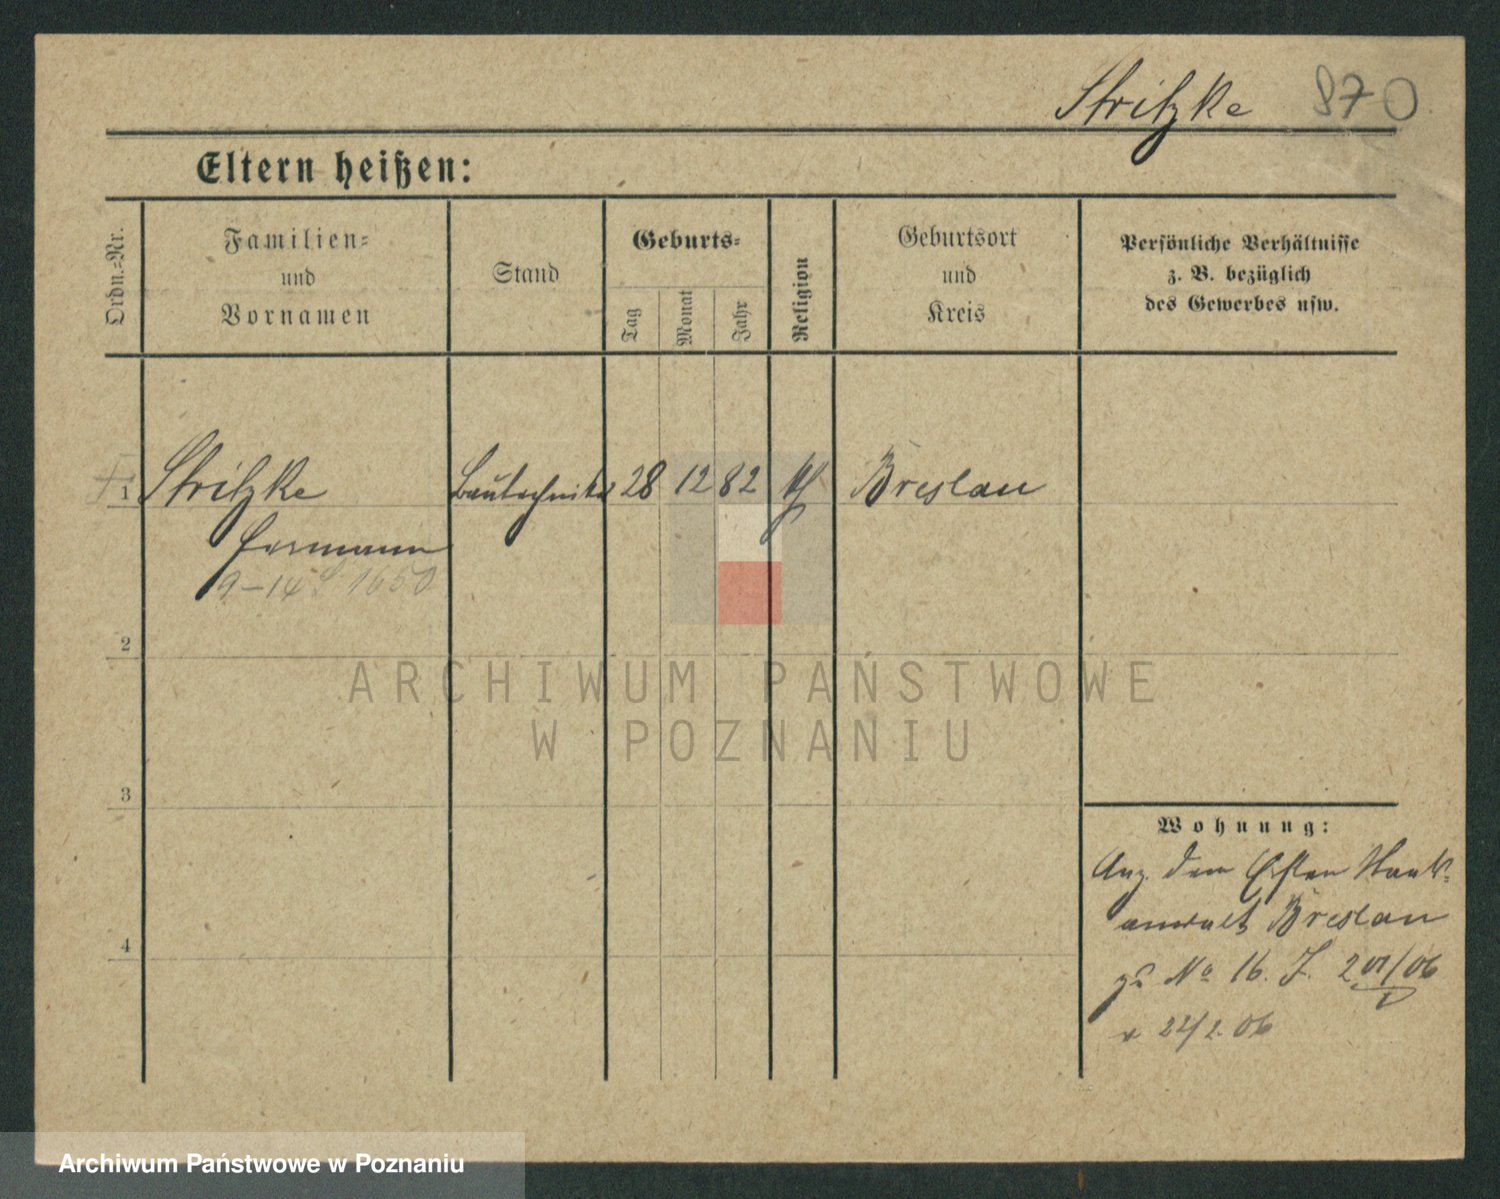 Stritzke 870
Eltern heißen:
Ordn.-Nr.
Familien-
und
Vornamen
Stand
Geburts-
Tag
Monat
Jahr
Religion
Geburtsort
und
Kreis
Persönliche Verhältnisse
z. B. bezüglich
des Gewerbes usw.
1 Stritzke Bautechniker 28 12 82 kth Breslau
Hermann
9-14 1650
2
ARCHIWUM PAŃSTWOWE
W POZNANIU
3
Wohnung:
Anz. dem Ersten Staats-
anwalt Breslau
zu No 16. J. 201/06
v 22/2. 06
4
Archiwum Państwowe w Poznaniu